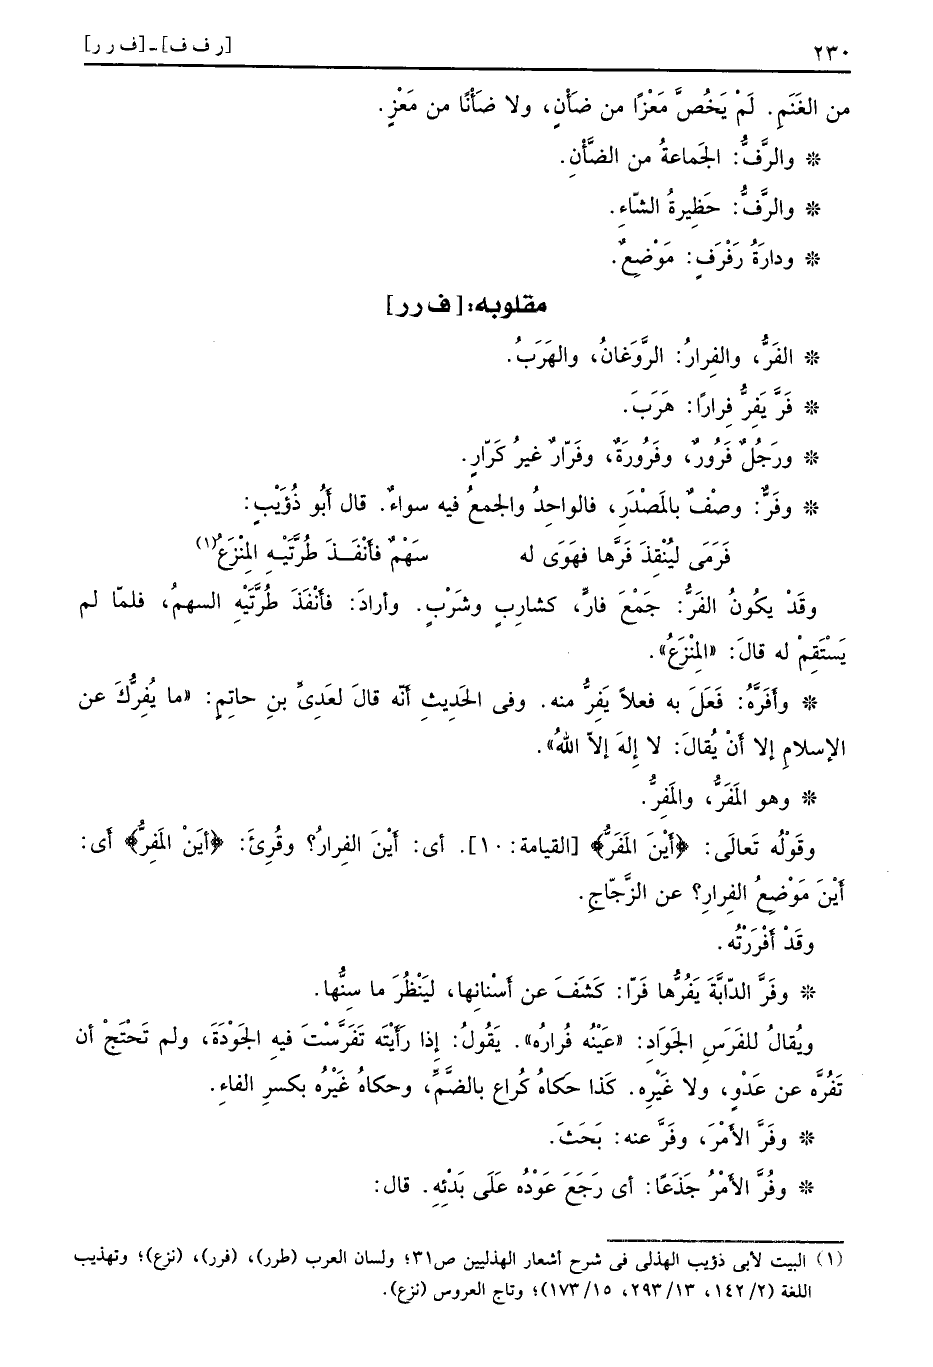 ٢٣٠ [ر ف ف] ـ [ف ر ر]
من الغَنَمِ. لَمْ يَخُصَّ مَعْزًا من ضَأْنٍ، ولا ضَأْنًا من مَعْزٍ.
* والرَّفُّ: الجَماعةُ من الضَّأْنِ.
* والرَّفُّ: حَظِيرةُ الشّاءِ.
* ودارَةُ رَفْرَفٍ: مَوْضِعٌ.
مقلوبه: [ف رر]
* الفَرُّ، والفِرارُ: الرَّوَغانُ، والهَرَبُ.
* فَرَّ يَفِرُّ فِرارًا: هَرَبَ.
* ورَجُلٌ فَرُورٌ، وفَرُورَةٌ، وفَرّارٌ غيرُ كَرّارٍ.
* وفَرٌّ: وصْفٌ بالمَصْدَرِ، فالواحِدُ والجمعُ فيه سواءٌ. قال أَبُو ذُؤَيْبٍ:
فَرَمَى لِيُنْقِذَ فَرَّها فهَوَى له سَهْمٌ فأَنْفَـذَ طُرَّتَيْـهِ المِنْزَعُ(١)
وقَدْ يكُونُ الفَرُّ: جَمْعَ فارٍّ، كشارِبٍ وشَرْبٍ. وأرادَ: فأَنْفَذَ طُرَّتَيْهِ السهمُ، فلمّا لم
يَسْتَقِمْ له قالَ: «المِنْزَعُ».
* وأفَرَّهُ: فَعَلَ به فعلاً يَفِرُّ منه. وفى الحَدِيثِ أنّه قالَ لعَدِىِّ بنِ حاتِمٍ: «ما يُفِرُّكَ عن
الإسلامِ إلا أَنْ يُقالَ: لا إلهَ إلاّ اللهُ».
* وهو المَفَرُّ، والمَفِرُّ.
وقَوْلُه تَعالَى: ﴿أَيْنَ المَفَرُّ﴾ [القيامة: ١٠]. أى: أَيْنَ الفِرارُ؟ وقُرِئَ: ﴿أَيَن المَفِرُّ﴾ أى:
أَيْنَ مَوْضِعُ الفِرارِ؟ عن الزَّجّاجِ.
وقَدْ أَفْرَرْتُه.
* وفَرَّ الدّابَّةَ يَفُرُّها فَرّا: كَشَفَ عن أَسْنانِها، ليَنْظُرَ ما سِنُّها.
ويُقالُ للفَرَسِ الجَوَادِ: «عَيْنُه فُرارُه». يَقُولُ: إذا رَأَيْتَه تَفَرَّسْتَ فيهِ الجَوْدَةَ، ولم تَحْتَجْ أن
تَفُرَّه عن عَدْوٍ، ولا غَيْرِه. كَذا حكاهُ كُراع بالضَّمِّ، وحكاهُ غَيْرُه بكسرِ الفاءِ.
* وفَرَّ الأَمْرَ، وفَرَّ عنه: بَحَثَ.
* وفُرَّ الأَمْرُ جَذَعًا: أى رَجَعَ عَوْدُه عَلَى بَدْئِهِ. قال:
(١) البيت لأبى ذؤيب الهذلى فى شرح أشعار الهذليين ص٣١؛ ولسان العرب (طرر)، (فرر)، (نزع)؛ وتهذيب
اللغة (٢/ ١٤٢، ١٣/ ٢٩٣، ١٥/ ١٧٣)؛ وتاج العروس (نزع).